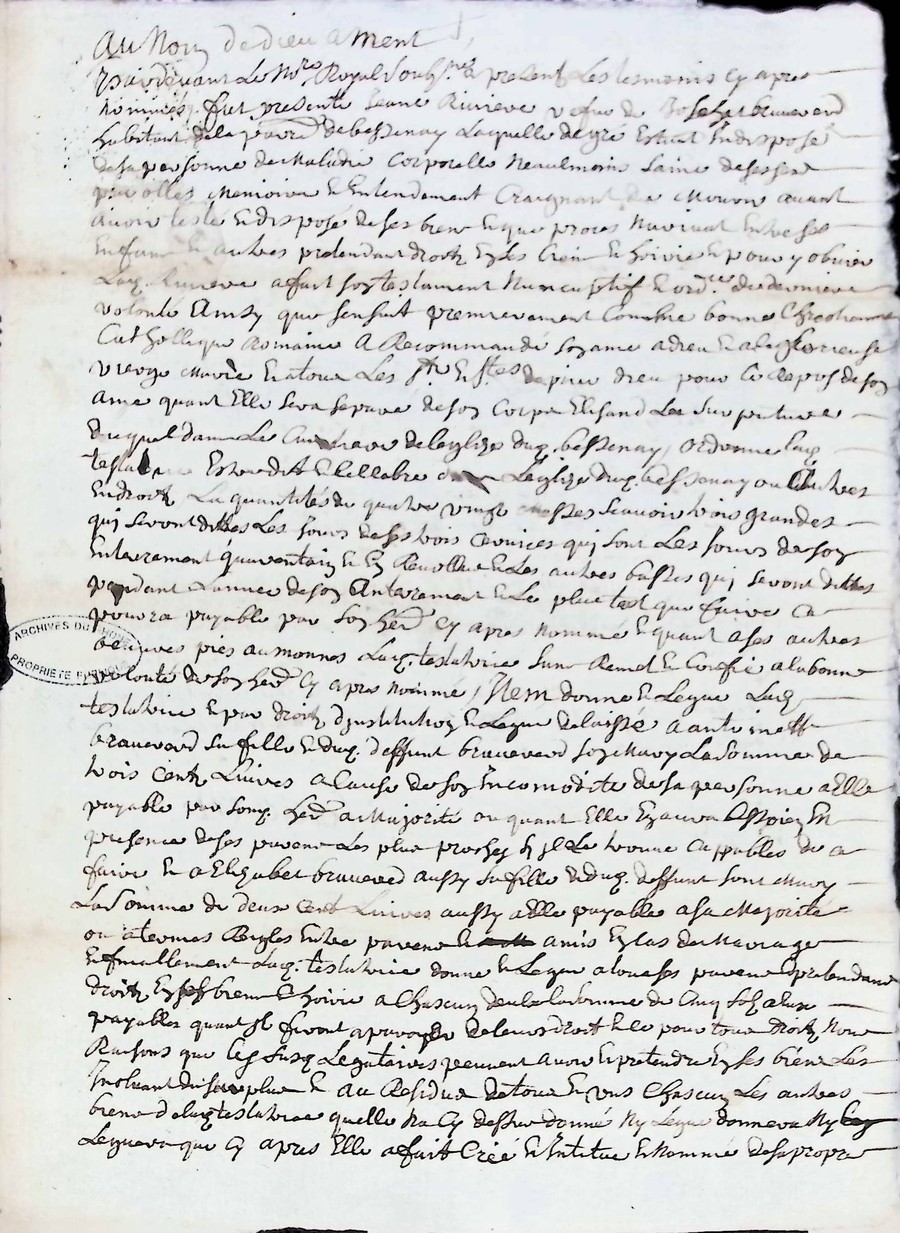 Au Nom de dieu ament
Pardevant Le No.re Royal soub.né & present Les tesmoins cy apres
nommés, fust presente Jeanne Riviere vefve de
habitant de la parre de bessenay Laquelle de gré Estant Indisposé
de sa personne de Maladie Corporelle neaulmoins saine de ses sens
parolles Memoire & Entendement Craignant de Mourir avant
avoir testé & disposé de ses biens & que proces Navient Entre ses
Enfans & autres pretendant droit En ses biens & hoirie & pour y obvier
Laq. Riviere a fait son testament Nuncupatif & ord.ce de derniere
volonté Ainsy que sensuit premierement Comme bonne Chrestienne
Catholique Romaine A Recommandé son ame a dieu & a la glorieuse
vierge Marie & a tous Les sts & stes de prier dieu pour Le Repos de son
Ame quant Elle sera separé de son Corps Elisand La sepulture
duquel dans Le de leglize duq. bessenay, ordonne laq.
testatrice Estre dit & cellebré Leglize duq. bessenay ou autres
Endroit La quantités de quatre vingt messes scavoir trois grandes
quj seront dittes Les jours de ses trois services quj sont Les jours de son
Enterrement quarentain & En Revollu & Les autres basses quj seront dittes
pendant Lannee de son Enterement & Le plus tost que faire ce
pourra payable par son her. Cy apres Nommé & quant a ses autres
œuvres pies aumonnes Laq. testatrice sans Remet & Confie a la bonne
volonté de son her. Cy apres Nommé, Item donne & Legue Laq.
testatrice & par droit dinstitution & Legue delaissé a antoinette
braverard sa fille & duq. deffunt braverard son Mary La somme de
trois cents Livres a Cause de son Incomodité de sa personne a Elle
payable par son. her. a Majorité ou quant Elle
presence de ses parens Les plus proches sy jl Le trouve Cappables de ce
faire & a Elizabet braverard aussy sa fille & duq. deffunt sont Mary
La somme de deux cent Livres aussy a Elle payable a sa Majorité
ou a termes Regles Entre parens & amis En cas de Mariage
& finallement Laq. testatrice donne & Legue a tous ses parens pretendans
droit En ses biens & hoirie a Chascun deux La somme de Cinq sols a eux
payables quant jl feront apparoir de leurs droit & ce pour tous droits Noms
Raisons que les susq. Legataires peuvent avoir & pretendre En ses biens Les
Excluant du surplus & au Residue de tous & uns Chascun Les autres
biens delaq. testatrice quelle Na Cy dessus donné Ny Legue donnera Ny
Leguera que Cy apres Elle a fait Créé & Intitue & Nommé de sa propre
ARCHIVES DU RHONE
PROPRIETE PUBLIQUE